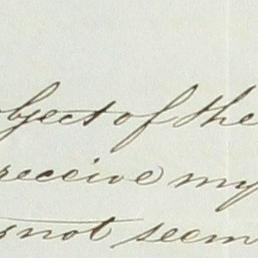 object of the
receive my
not seem